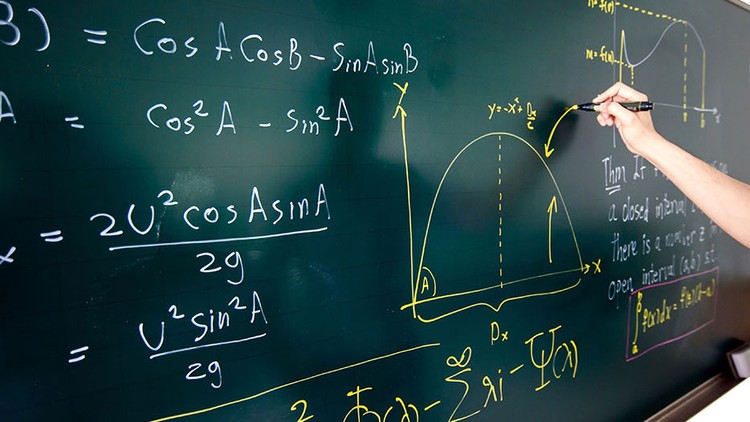 B) = Cos A CosB - SinA sinB
A = Cos²A - sin²A
x = 2U² cosAsinA / 2g
= U² sin²A / 2g
Y
y = -x² + Dx/2
A
X
Dx
∞
Σ λi - Ψ(λ)
2
m = f(n)
Thm If
a closed interval
there is a number z
open interval (a,b) s.t.
∫ f(x)dx = f(z)(b-a)